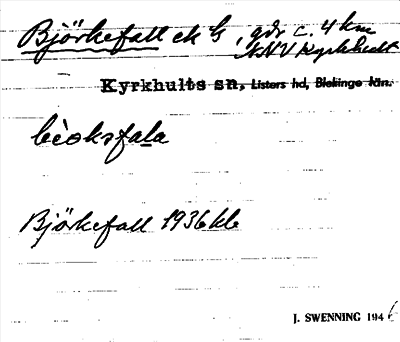 Björkefall ek bl, gdr c. 4 km
NNV Kyrkhult
Kyrkhults sn, Listers hd, Blekinge län.
bèoksfala
Björkefall 1936 kb
J. SWENNING 1946